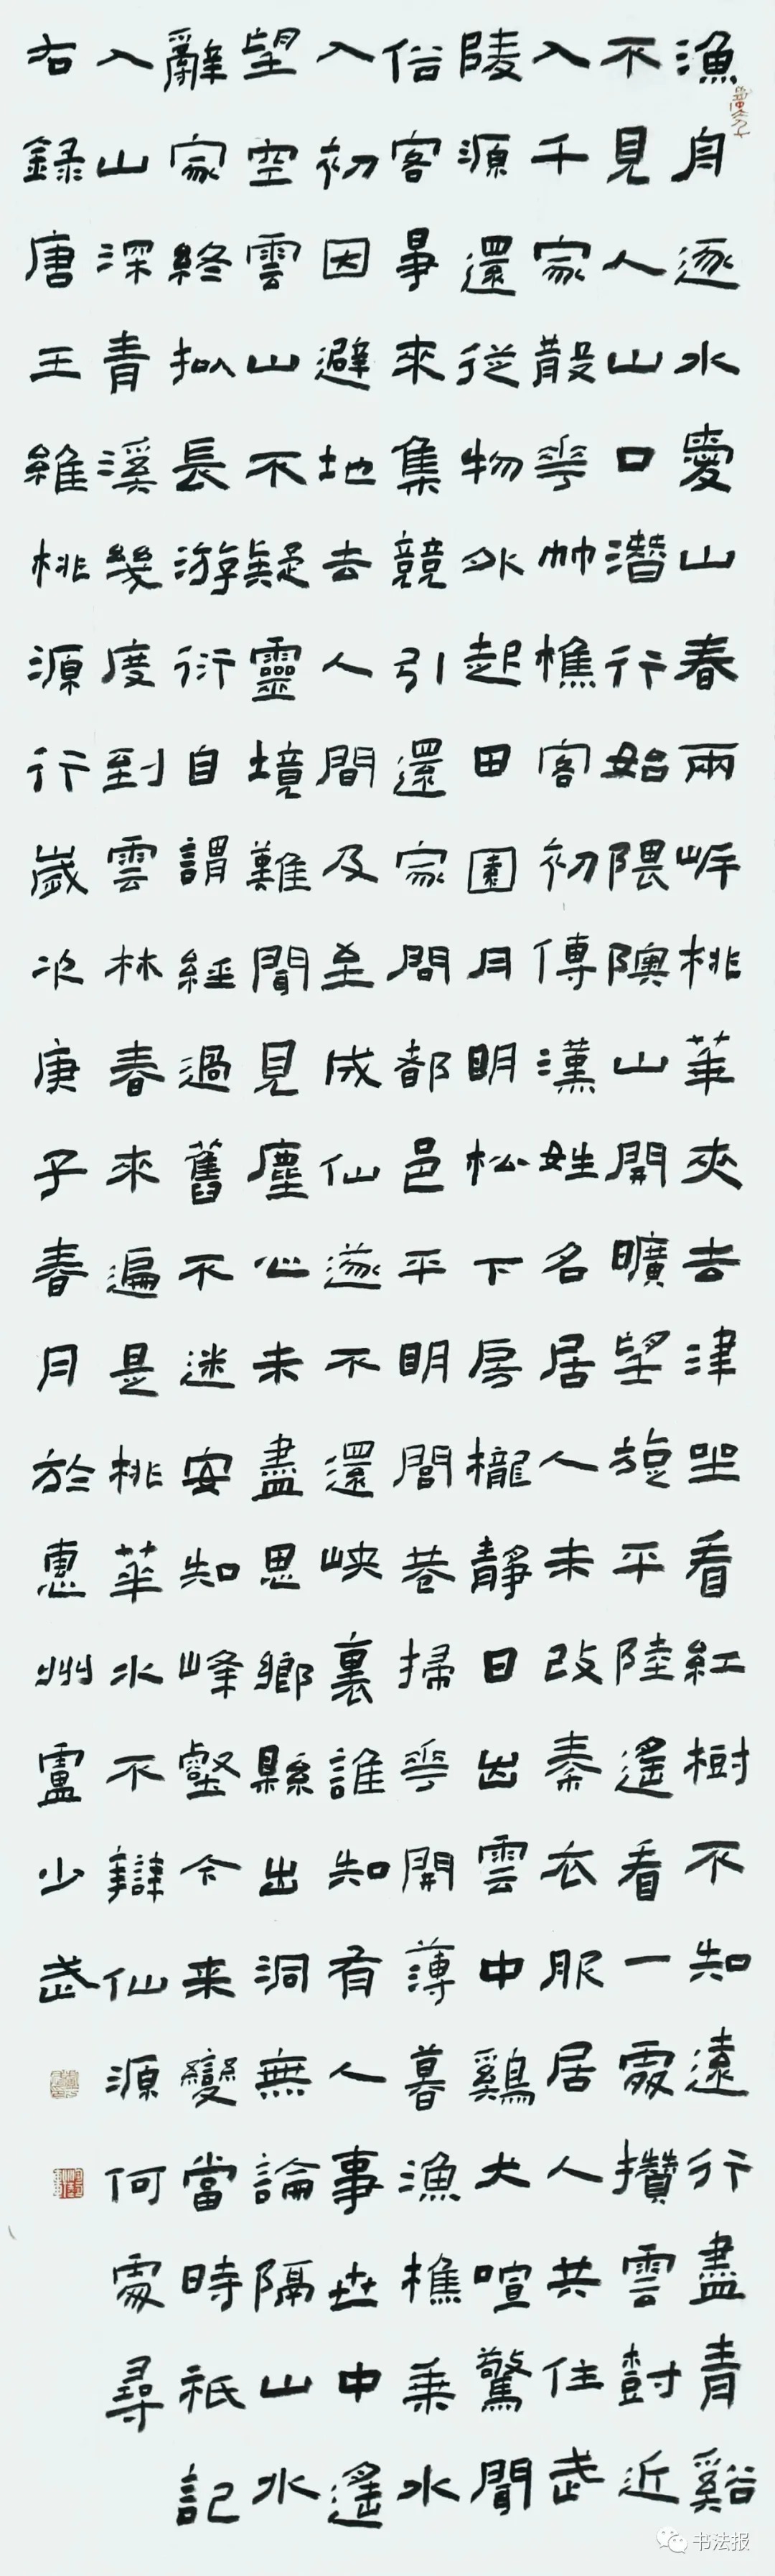 漁舟逐水愛山春兩岸桃華夾去津坐看紅樹不知遠行盡青谿
不見人山口潛行始隈隩山開曠望旋平陸遙看一處攢雲樹近
入千家散花竹樵客初傳漢姓名居人未改秦衣服居人共住武
陵源還從物外起田園月明松下房櫳靜日出雲中鷄犬喧驚聞
俗客爭來集競引還家問都邑平明閭巷掃花開薄暮漁樵乘水
入初因避地去人間及至成仙遂不還峽裏誰知有人事世中遙
望空雲山不疑靈境難聞見塵心未盡思鄉縣出洞無論隔山水
辭家終擬長游衍自謂經過舊不迷安知峰壑今来變當時祇記
入山深青溪幾度到雲林春來遍是桃華水不辯仙源何處尋
右録唐王維桃源行歲次庚子春月於惠州盧少武
书法报